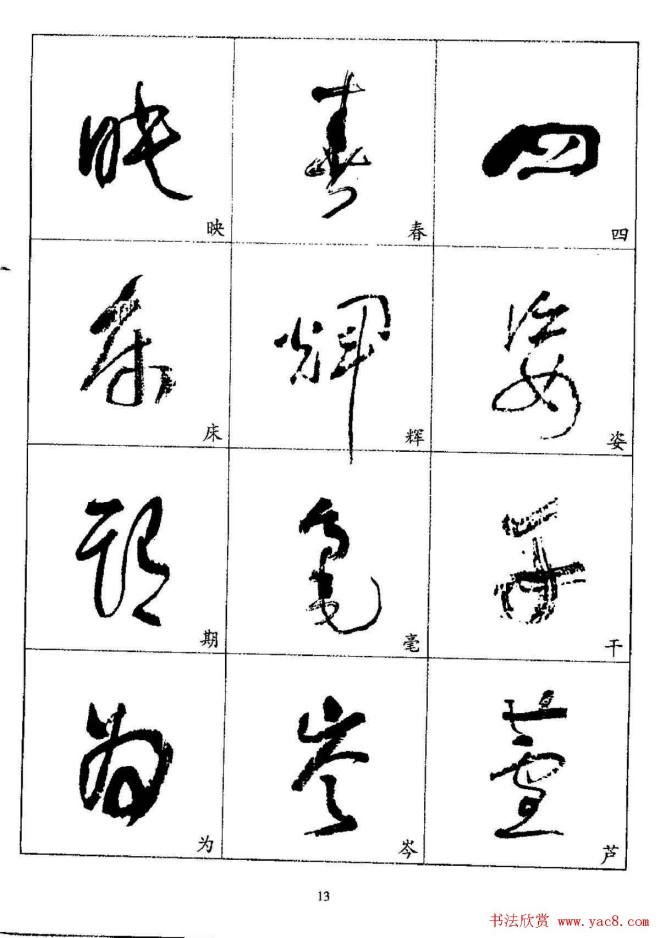 映 春 四
床 辉 姿
期 毫 干
为 岑 芦
13
书法欣赏 www.yac8.com